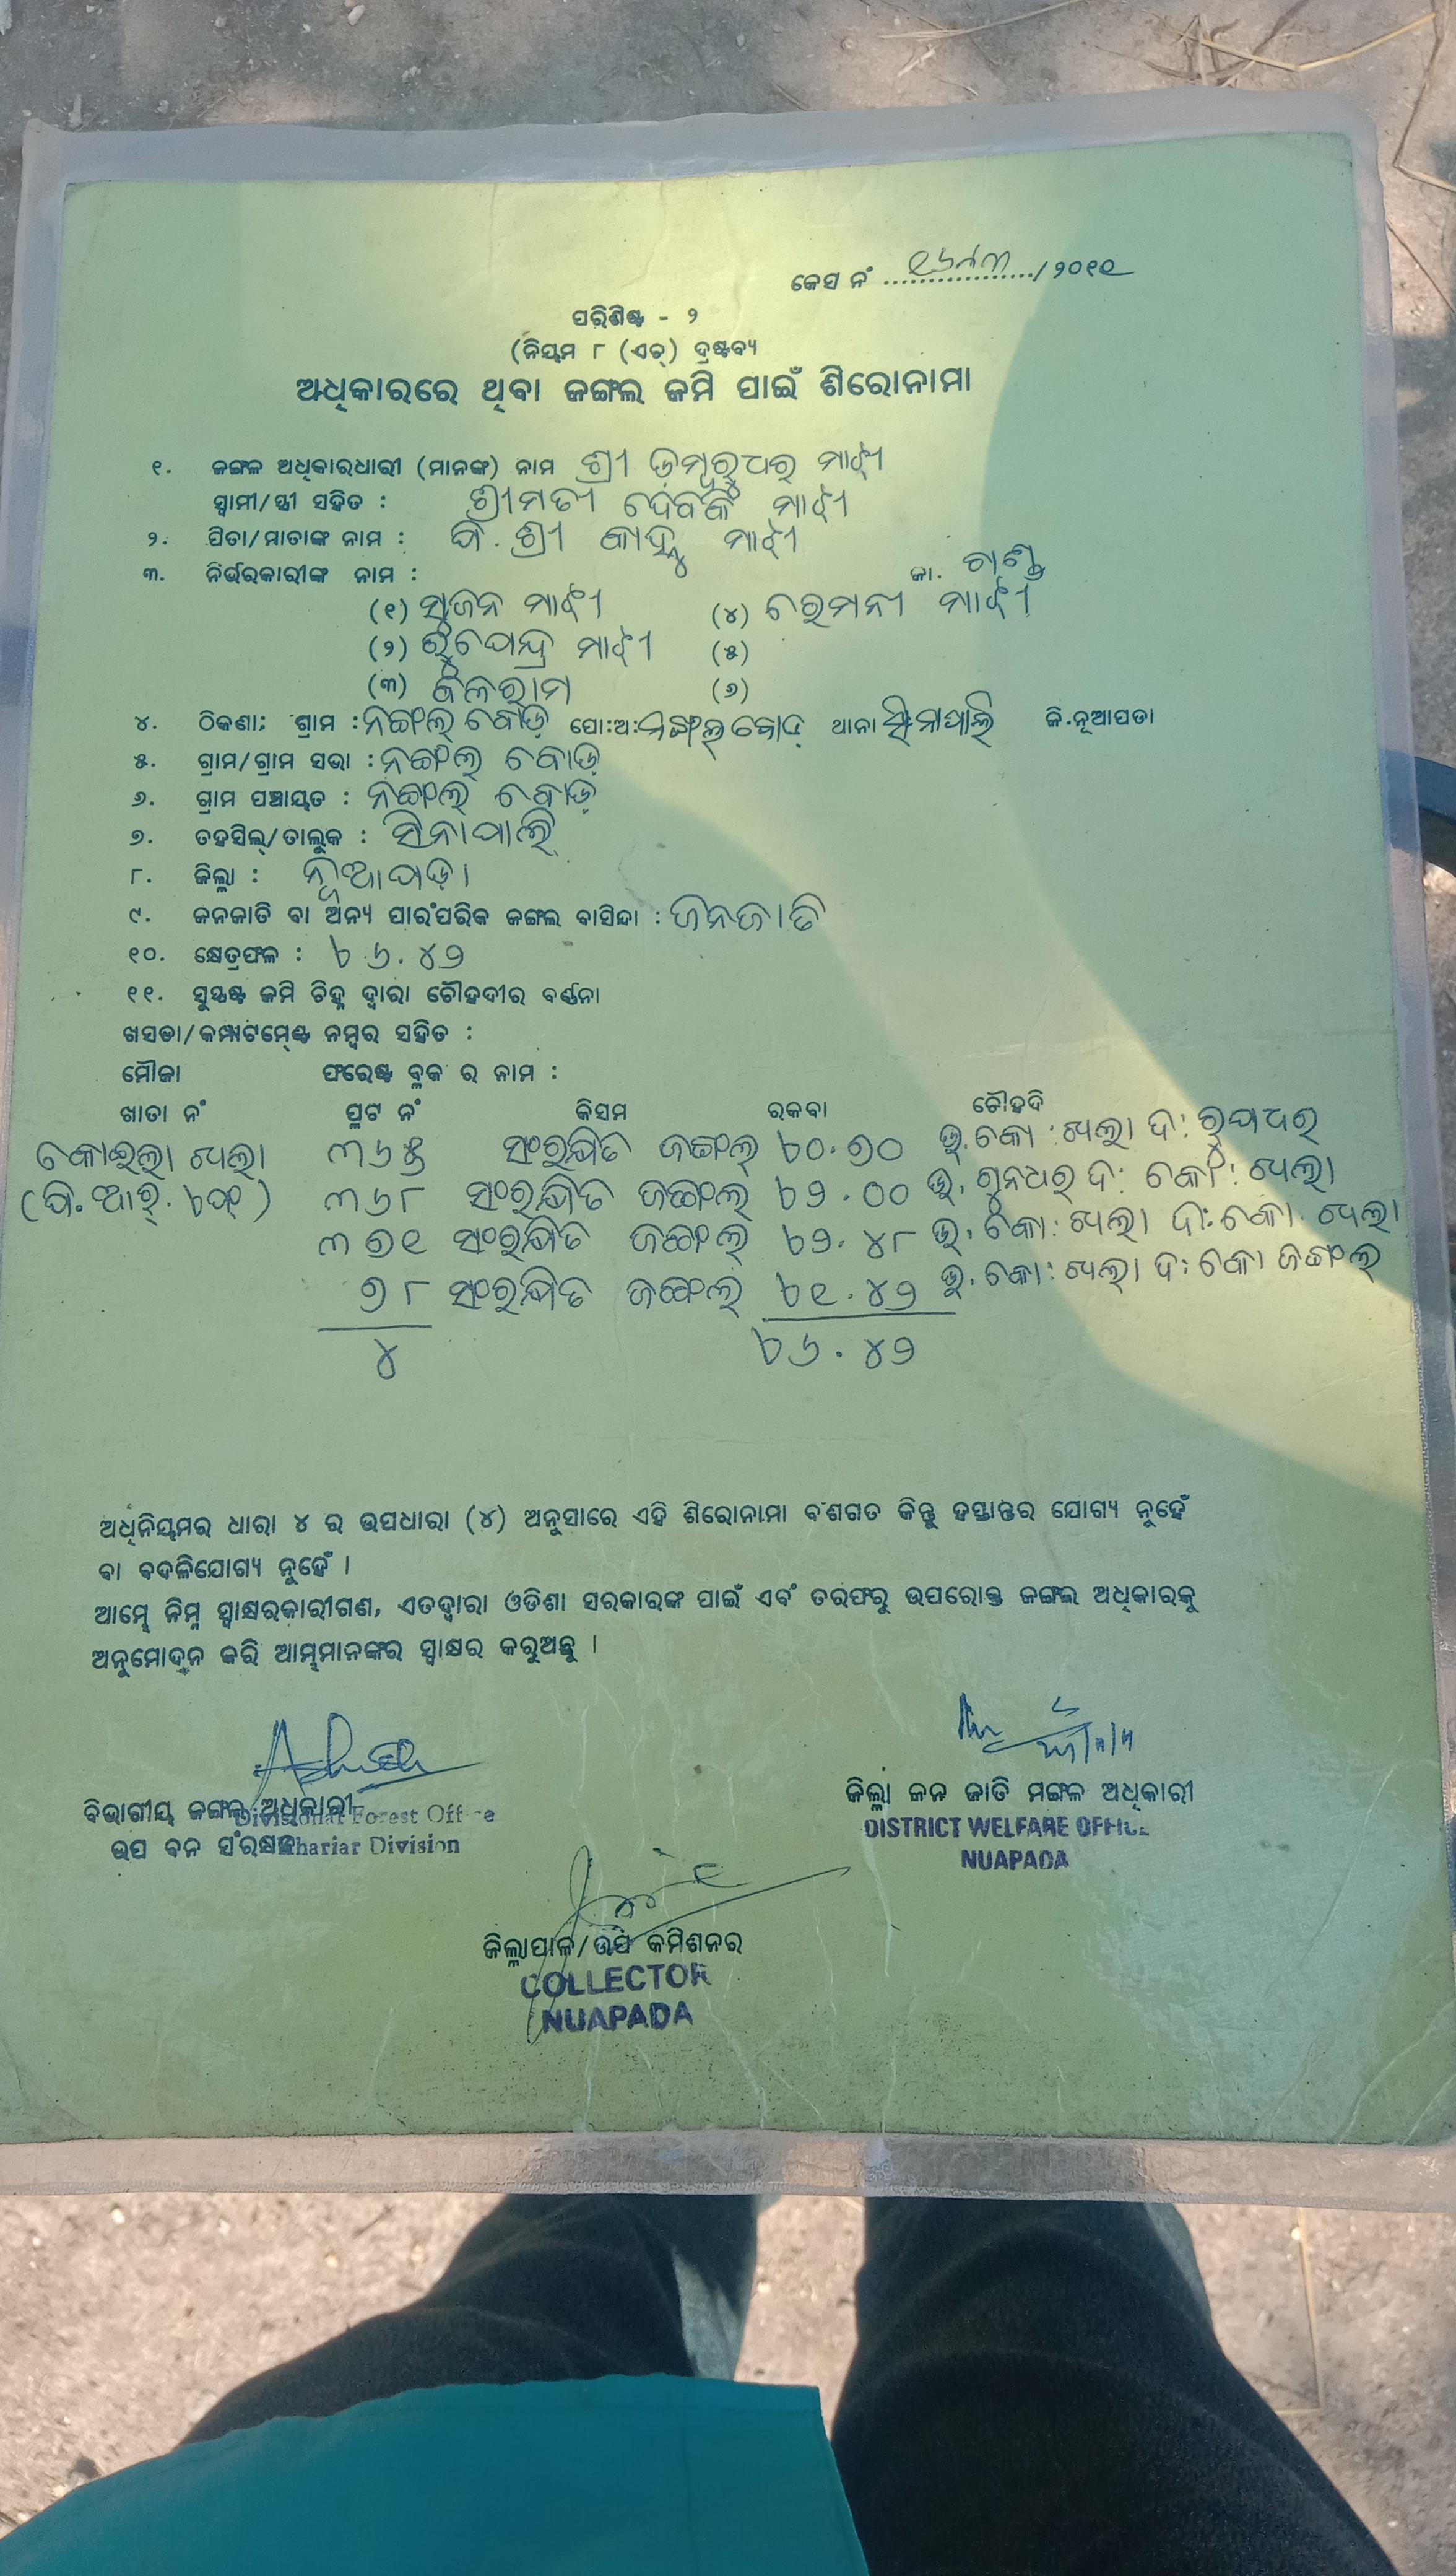 କେସ ନଂ ୧୬୯୩/୨୦୧୧
ପରିଶିଷ୍ଟ - ୨
(ନିୟମ ୮ (ଏଚ୍) ଦ୍ରଷ୍ଟବ୍ୟ
ଅଧିକାରରେ ଥିବା ଜଙ୍ଗଲ ଜମି ପାଇଁ ଶିରୋନାମା
୧. ଜଙ୍ଗଳ ଅଧିକାରଧାରୀ (ମାନଙ୍କ) ନାମ ଶ୍ରୀ ଡମ୍ବରୁଧର ମାଝୀ
ସ୍ୱାମୀ/ସ୍ତ୍ରୀ ସହିତ : ଶ୍ରୀମତୀ ଦେବକି ମାଝୀ
୨. ପିତା/ମାତାଙ୍କ ନାମ : ପି. ଶ୍ରୀ କାହ୍ନୁ ମାଝୀ
୩. ନିର୍ଭରକାରୀଙ୍କ ନାମ : ଜା. ଗଣ୍ଡ
(୧) ସୁଜନ ମାଝୀ (୪) ଚେମନୀ ମାଝୀ
(୨) ରୁପେନ୍ଦ୍ର ମାଝୀ (୫)
(୩) ବଳରାମ (୬)
୪. ଠିକଣା: ଗ୍ରାମ : ନଙ୍ଗଲ୍ ବୋଡ଼ ପୋ:ଅ: ନଙ୍ଗଲ୍ ବୋଡ଼ ଥାନା ସିନାପାଲି ଜି.ନୂଆପଡା
୫. ଗ୍ରାମ/ଗ୍ରାମ ସଭା : ନଙ୍ଗଲ୍ ବୋଡ଼
୬. ଗ୍ରାମ ପଞ୍ଚାୟତ : ନଙ୍ଗଲ୍ ବୋଡ଼
୭. ତହସିଲ୍/ତାଲୁକ : ସିନାପାଲି
୮. ଜିଲ୍ଲା : ନୂଆପଡ଼ା
୯. ଜନଜାତି ବା ଅନ୍ୟ ପାରଂପରିକ ଜଙ୍ଗଲ ବାସିନ୍ଦା : ଜନଜାତି
୧୦. କ୍ଷେତ୍ରଫଳ : ୪୬.୪୨
୧୧. ସୁସ୍ପଷ୍ଟ ଜମି ଚିହ୍ନ ଦ୍ୱାରା ଚୌହଦୀର ବର୍ଣ୍ଣନା
ଖସଡା/କମ୍ପାଟମେଣ୍ଟ ନମ୍ବର ସହିତ :
ମୌଜା ଫରେଷ୍ଟ ବ୍ଲକ ର ନାମ :
ଖାତା ନଂ ପ୍ଲଟ ନଂ କିସମ ରକବା ଚୌହଦି
୩୬୫ ସଂରକ୍ଷିତ ଜଙ୍ଗଲ୍
୩୬୮ ସଂରକ୍ଷିତ ଜଙ୍ଗଲ୍
୩୭୧ ସଂରକ୍ଷିତ ଜଙ୍ଗଲ୍
୭୮ ସଂରକ୍ଷିତ ଜଙ୍ଗଲ୍
୪
ଅଧିନିୟମର ଧାରା ୪ ର ଉପଧାରା (୪) ଅନୁସାରେ ଏହି ଶିରୋନାମା ବଂଶଗତ କିନ୍ତୁ ହସ୍ତାନ୍ତର ଯୋଗ୍ୟ ନୁହେଁ
ବା ବଦଳିଯୋଗ୍ୟ ନୁହେଁ ।
ଆମ୍ଭେ ନିମ୍ନ ସ୍ୱାକ୍ଷରକାରୀଗଣ, ଏତଦ୍ୱାରା ଓଡିଶା ସରକାରଙ୍କ ପାଇଁ ଏବଂ ତରଫରୁ ଉପରୋକ୍ତ ଜଙ୍ଗଲ ଅଧିକାରକୁ
ଅନୁମୋଦନ କରି ଆମ୍ଭମାନଙ୍କର ସ୍ୱାକ୍ଷର କରୁଅଛୁ ।
ବିଭାଗୀୟ ଜଙ୍ଗଲ ଅଧିକାରୀ
Divisional Forest Office
ଉପ ବନ ସଂରକ୍ଷକ
Khariar Division
ଜିଲ୍ଲା ଜନ ଜାତି ମଙ୍ଗଳ ଅଧିକାରୀ
DISTRICT WELFARE OFFICE
NUAPADA
ଜିଲ୍ଲାପାଳ/ଉପ କମିଶନର
COLLECTOR
NUAPADA